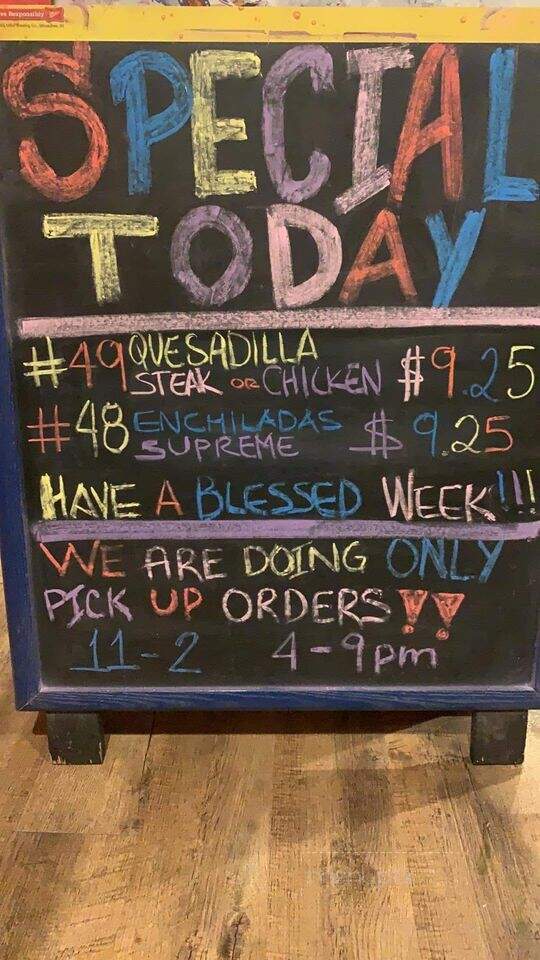 ve Responsibly
SPECIAL
TODAY
#49 QUESADILLA
STEAK OR CHICKEN $9.25
#48 ENCHILADAS
SUPREME $9.25
HAVE A BLESSED WEEK!!!
WE ARE DOING ONLY
PICK UP ORDERS!!
11-2 4-9pm